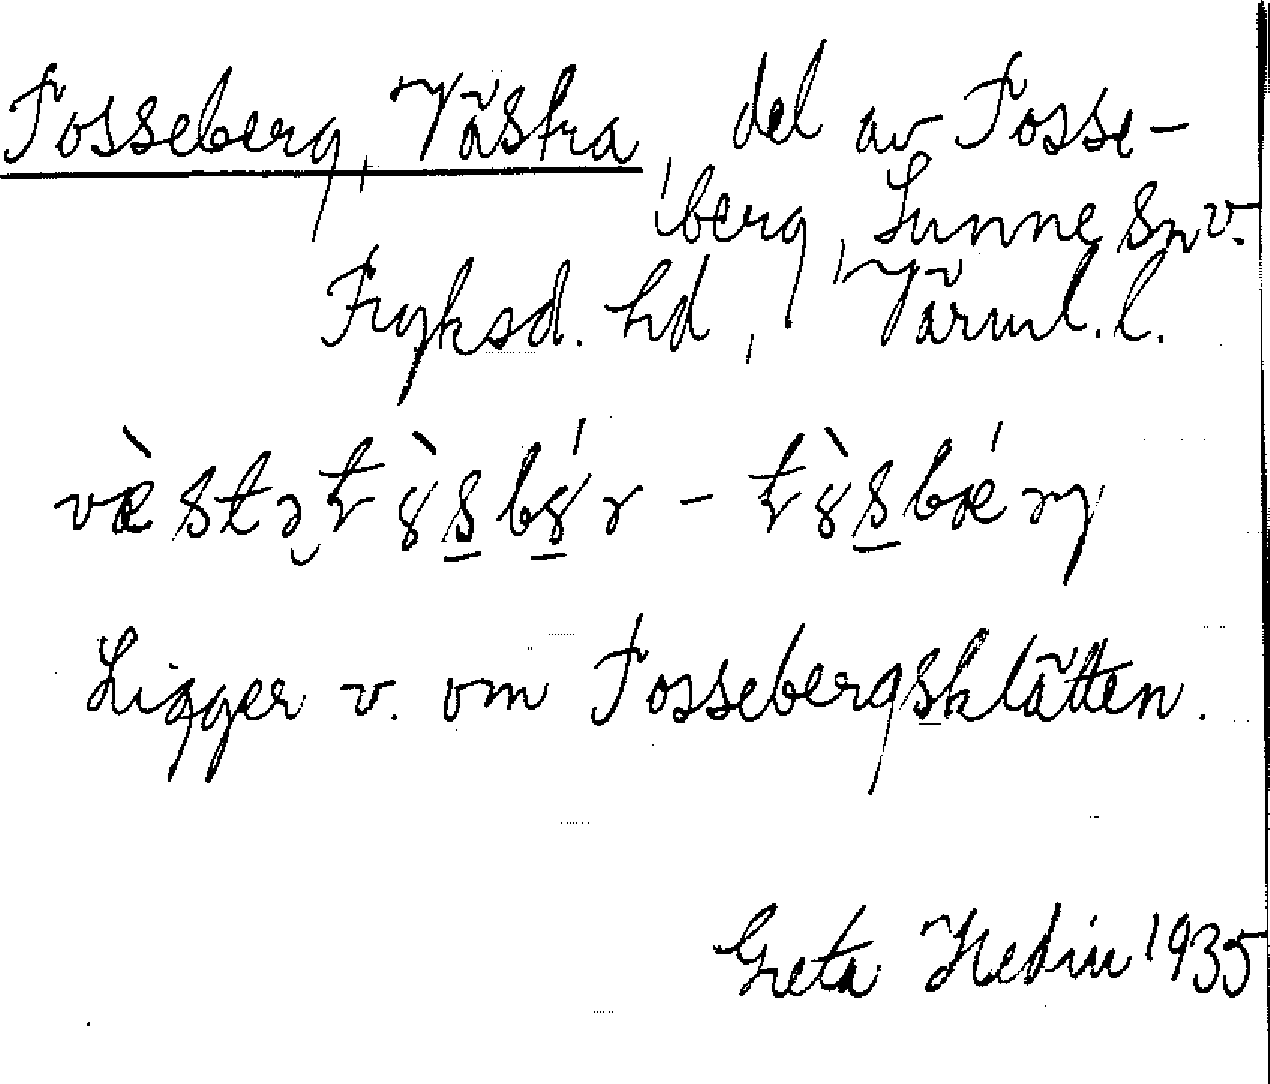 Fosseberg, Västra, del av Fosse-
berg, Sunne sn v.
Fryksd. hd, Värml. l.
Ligger v. om Fossebergsklätten.
Greta Hedin 1935